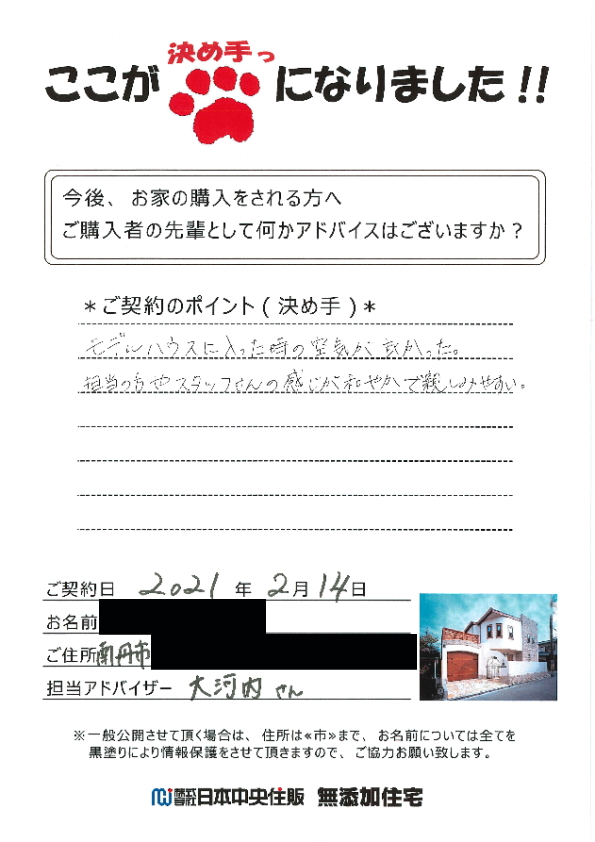 決め手っ
ここが になりました!!
今後、お家の購入をされる方へ
ご購入者の先輩として何かアドバイスはございますか?
*ご契約のポイント(決め手)*
モデルハウスに入った時の空気が良かった。
担当の方やスタッフさんの感じが和やかで親しみやすい。
ご契約日 2021 年 2月 14日
お名前
ご住所 南丹市
担当アドバイザー 大河内さん
※一般公開させて頂く場合は、住所は≪市≫まで、お名前については全てを
黒塗りにより情報保護をさせて頂きますので、ご協力お願い致します。
株式会社日本中央住販 無添加住宅